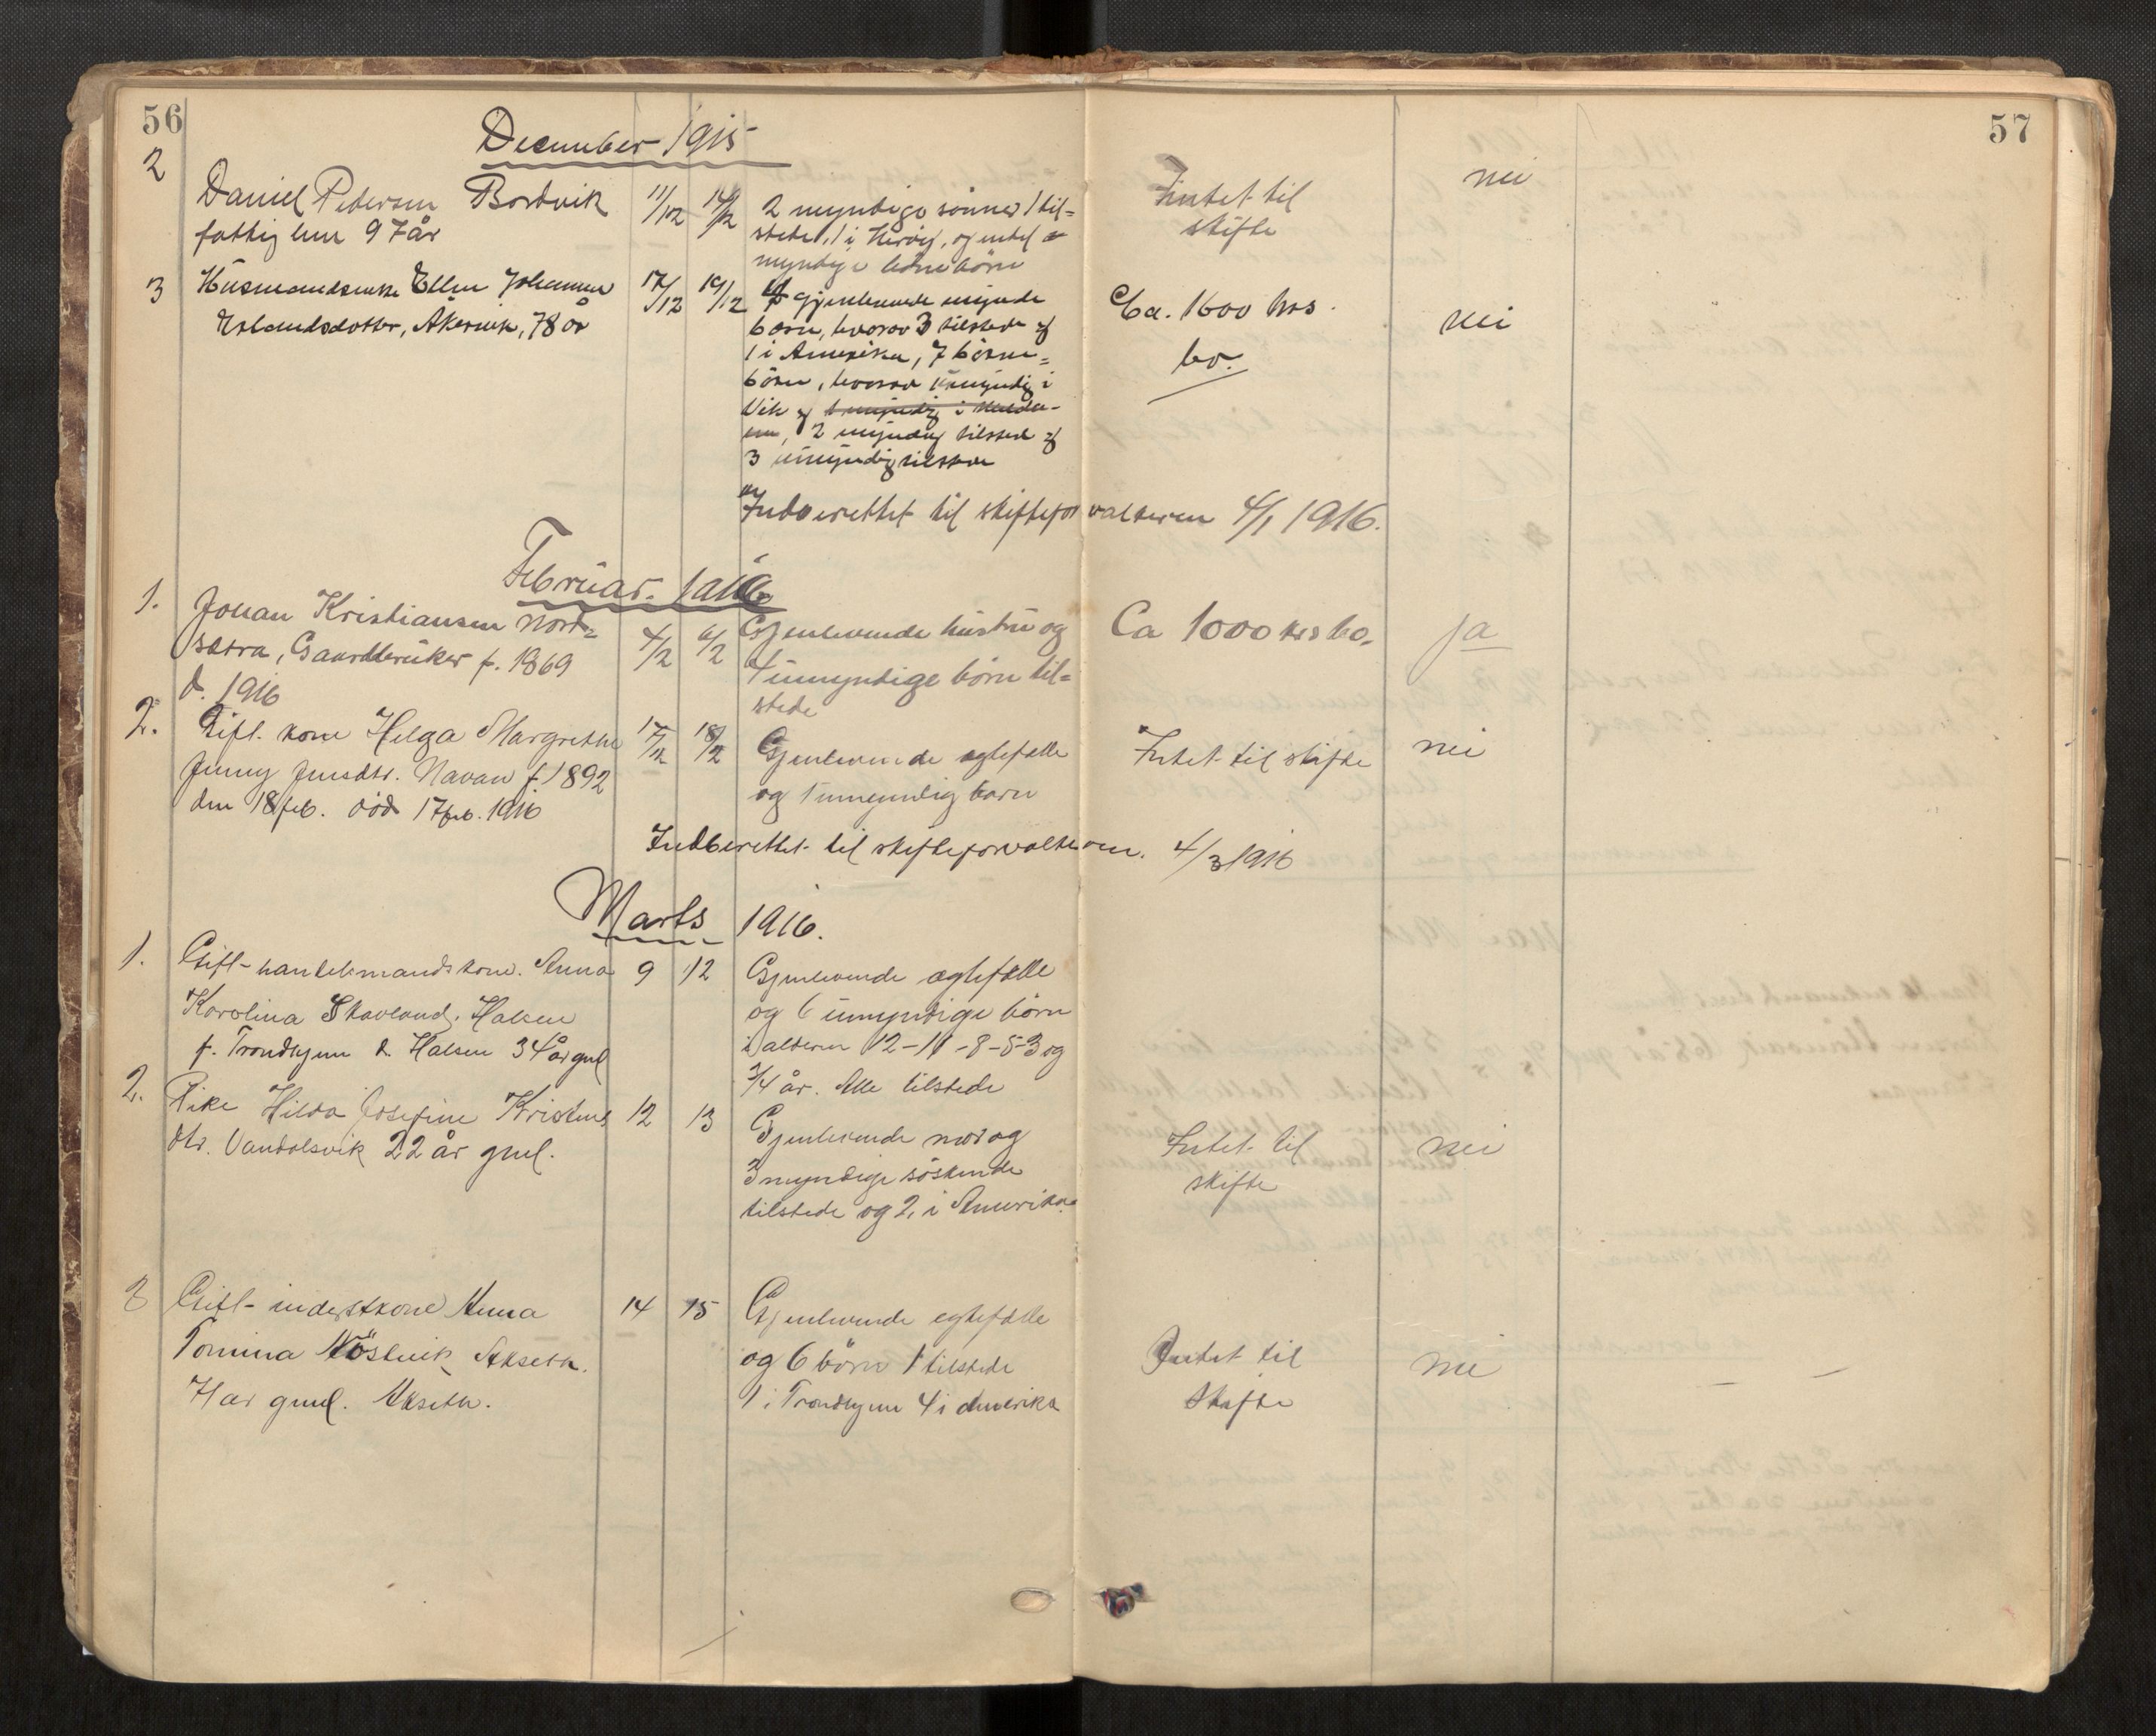 56
57
December 1915
2
Daniel Petersen Bordvik
fattig lem 97 år
11/12 14/12
2 myndige sönner 1 til=
stede, 1 i Heröy, og
myndige börnebörn
Intet til
skifte
nei
3
Husmandsenke Ellen Johanna
Erlandsdotter, Åkervik, 78 år
17/12 19/12
4 gjenlevende mynde
börn, hvorav 3 tilstede og
1 i Amerika, 7 börne=
börn, hvorav 1 umyndig i
Vik og 1 myndig i
2 myndig tilsted og
3 umyndig tilstede
Ca. 1600 krs.
bo.
nei
Indberettet til skifteforvalteren 4/1 1916.
Februar 1916
1.
Johan Kristiansen Nord=
særa, Gaardbruker f. 1869
d. 1916
4/2 6/2
Gjenlevende hustru og
4 umyndige börn til=
stede
Ca 1000 krs bo.
ja
2.
Gift. kone Helga Margrethe
Jenny Jensdtr. Navan f. 1892
den 18 feb. död 17 feb. 1916
17/2 18/2
Gjenlevende egtefælle
og 1 umyndig barn
Intet til skifte
nei
Indberettet til skifteforvalteren. 4/3 1916
Marts 1916.
1.
Gift- handelsmandskone. Anna
Karolina Skavland, Halsen
f. Trondhjem d. Halsen 34 år gml
9 12
Gjenlevende ægtefælle
og 6 umyndige börn
i alderen 12-11-8-5-3 og
3/4 år. Alle tilstede
2.
Pike Hilda Josefine Kristens
dtr. Vandalsvik 22 år gml.
12 13
Gjenlevende mor og
3 myndige söskende
tilstede og 2 i Amerika.
Intet til
skifte
nei
3
Gift- inderstkone Anna
Tomina Akseth.
år gml. Akseth.
14 15
Gjenlevende egtefælle
og 6 börn 1 tilstede
1 i Trondhjem 4 i Amerika
Intet til
Skifte
nei